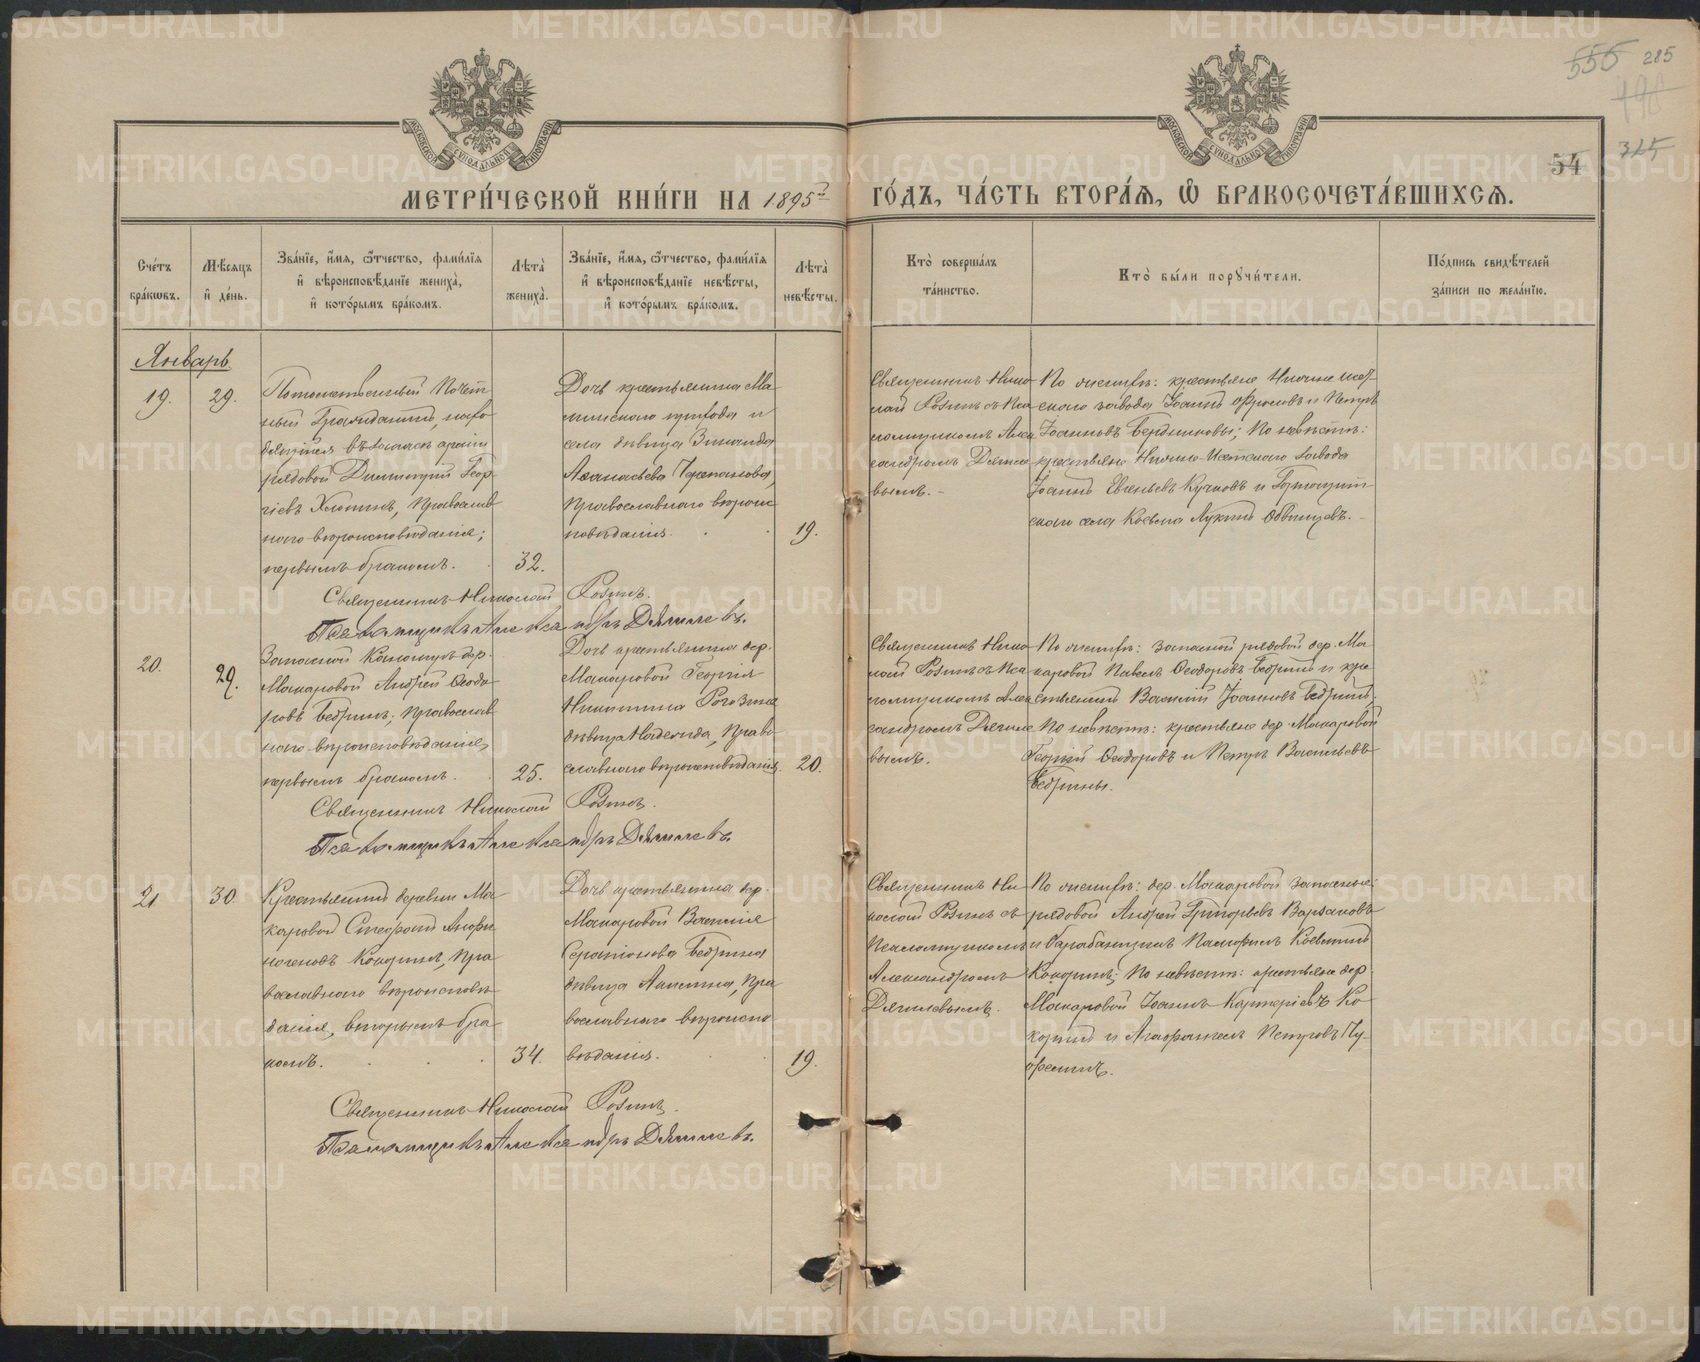 555 285
198
325
54
МОСКОВСКОЙ СѴНОДАЛЬНОЙ ТИПОГРАФІИ
МОСКОВСКОЙ СѴНОДАЛЬНОЙ ТИПОГРАФІИ
МЕТРИ́ЧЕСКОЙ КНИ́ГИ НА 1895 г. ГО́ДЪ, ЧА́СТЬ ВТОРА́Я, Ѡ БРАКОСОЧЕТА́ВШИХСЯ.
Сче́тъ бра́кѡвъ.
Мѣ́сяцъ и҆ де́нь.
Зва́нїе, и҆́мя, ѻ҆́тчество, фами́лїя
и҆ вѣроисповѣ́данїе жениха̀,
и҆ кото́рымъ бра́комъ.
Лѣта̀ жениха̀.
Зва́нїе, и҆́мя, ѻ҆́тчество, фами́лїя
и҆ вѣроисповѣ́данїе невѣ́сты,
и҆ кото́рымъ бра́комъ.
Лѣта̀ невѣ́сты.
Кто̀ соверша́лъ та́инство.
Кто̀ бы́ли порꙋчи́тели.
По́дпись свидѣ́телей за́писи по жела́нїю.
Январь.
19.
29.
Потомственный Почет-
ный Гражданинъ, нахо-
дящійся въ запасѣ арміи
рядовой Димитрій Геор-
гіевъ Хлопинъ, Православ-
наго вѣроисповѣданія;
первымъ бракомъ.
32.
Дочь крестьянина Ма-
минскаго прихода и
села дѣвица Зинаида
Аѳанасьева Черепанова,
Православнаго вѣроис-
повѣданія.
19.
Священникъ Нико-
лай Розинъ съ Пса-
ломщикомъ Алек-
сандромъ Дягиле-
вымъ.
По женихѣ: крестьяне Нижне-Исет-
скаго завода Іоаннъ Фроловъ и Петръ
Іоанновъ Бердниковы; По невѣстѣ:
крестьяне Нижне-Исетскаго завода
Іоаннъ Евгеньевъ Кучковъ и
скаго села Косьма Лукинъ Обвинцевъ.
Священникъ Николай Розинъ.
Псаломщикъ Александръ Дягилевъ.
20.
29.
Запасной Канониръ дер.
Макаровой Андрей Ѳеодо-
ровъ Бедринъ; Православ-
наго вѣроисповѣданія,
первымъ бракомъ.
25.
Дочь крестьянина дер.
Макаровой Георгія
Никитина Рогозина
дѣвица Надежда, Право-
славнаго вѣроисповѣданія.
20.
Священникъ Нико-
лай Розинъ съ Пса-
ломщикомъ Алек-
сандромъ Дягиле-
вымъ.
По женихѣ: запасной рядовой дер. Ма-
каровой Павелъ Ѳеодоровъ Бедринъ и кре-
стьянинъ Василій Іоанновъ Бедринъ;
По невѣстѣ: крестьяне дер. Макаровой
Георгій Ѳеодоровъ и Петръ Васильевъ
Бедрины.
Священникъ Николай Розинъ.
Псаломщикъ Александръ Дягилевъ.
21
30
Крестьянинъ деревни Ма-
каровой Стефанъ Анфи-
ногеновъ Кокоринъ, Пра-
вославнаго вѣроисповѣ-
данія, вторымъ бра-
комъ.
34.
Дочь крестьянина дер.
Макаровой Василія
Серапіонова Бедрина
дѣвица Анисія, Пра-
вославнаго вѣроиспо-
вѣданія.
19.
Священникъ Ни-
колай Розинъ съ
Псаломщикомъ
Александромъ
Дягилевымъ.
По женихѣ: дер. Макаровой запасные:
рядовой Андрей Григорьевъ Варзаковъ
и барабанщикъ Памфилъ Косьминъ
Кокоринъ; По невѣстѣ: крестьяне дер.
Макаровой Іоаннъ Картеріевъ Ко-
коринъ и Агафангелъ Петровъ Чу-
феринъ.
Священникъ Николай Розинъ.
Псаломщикъ Александръ Дягилевъ.
METRIKI.GASO-URAL.RU